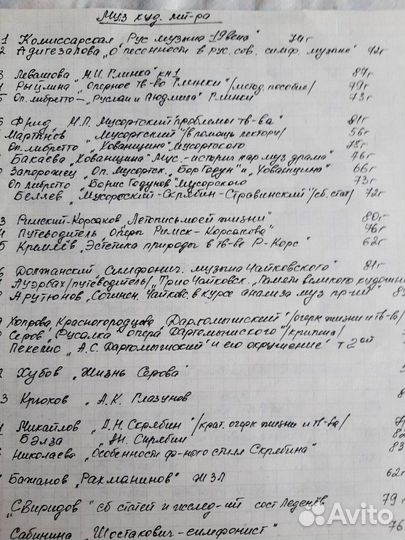 Муз худ. лит-ра
1 Комиссарская Рус музыка 19 века 74г
2 Адигезалова „О песенности в рус. сов. симф. музыке" 72г
3 Левашова „М.И. Глинка" кн1 87г
4 Рыцлина „Оперное тв-во Глинки" /метод. пособие/ 79г
5 Оп. либретто — „Руслан и Людмила" Глинки 73г
6 Фрид М.П. Мусоргский проблемы тв-ва 81г
Мартынов „Мусоргский" /в помощь лектору/ 56г
Оп. либретто „Хованщина" Мусоргского 75г
Бакаева „Хованщина" Мус. - историч нар муз драма" 76г
0 Запорожец „Оп. Мусоргск. „Бор Годун" и „Хованщина" 66г
Оп либретто „Борис Годунов" Мусоргского 73г
Беляев „Мусоргский-Скрябин-Стравинский" /сб. стат/ 72г
3 Римский-Корсаков Летопись моей жизни" 80г
4 Путеводитель оперы Римск-Корсакова" 76г
5 Кремлёв „Эстетика природы в тв-ве Р-Корс" 62г
6 Должанский „Симфонич. музыка Чайковского" 81г
Ауэрбах /путеводитель/ „Трио Чайковск. „Памяти великого художн
Арутюнов „Сочинен. Чайков. в курсе анализа муз пр-ий"
Хопрова, Красногородцева „Даргомыжский" /очерк жизни и тв-ва/
Серов „Русалка" опера Даргомыжского" /критика/
Пекелис „А.С. Даргомыжский" и его окружение" т 2ой
Хубов „Жизнь Серова"
3 Крюков „А.К. Глазунов
Михайлов „А.Н. Скрябин" /крат. очерк жизни и тв-ва/
Бэлза „А.Н. Скрябин"
Николаева „Особенности ф-ного стиля Скрябина" 83
Бажанов „Рахманинов" ЖЗЛ
„Свиридов" сб статей и исслед-ий сост Леденёв 79
Сабинина „Шостакович-симфонист" 76
Avito